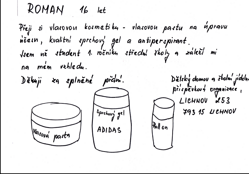 ROMAN 16 let
Přeji si vlasovou kosmetiku - vlasovou pastu na úpravu
účesu, kvalitní sprchový gel a antiperspirant.
Jsem už student 1. ročníku střední školy a záleží mi
na mém vzhledu.
Děkuji za splněné přání.
Dětský domov a školní jídelna
příspěvková organizace,
LICHNOV 253
793 15 LICHNOV
vlasová pasta
Sprchový gel
ADIDAS
Roll on